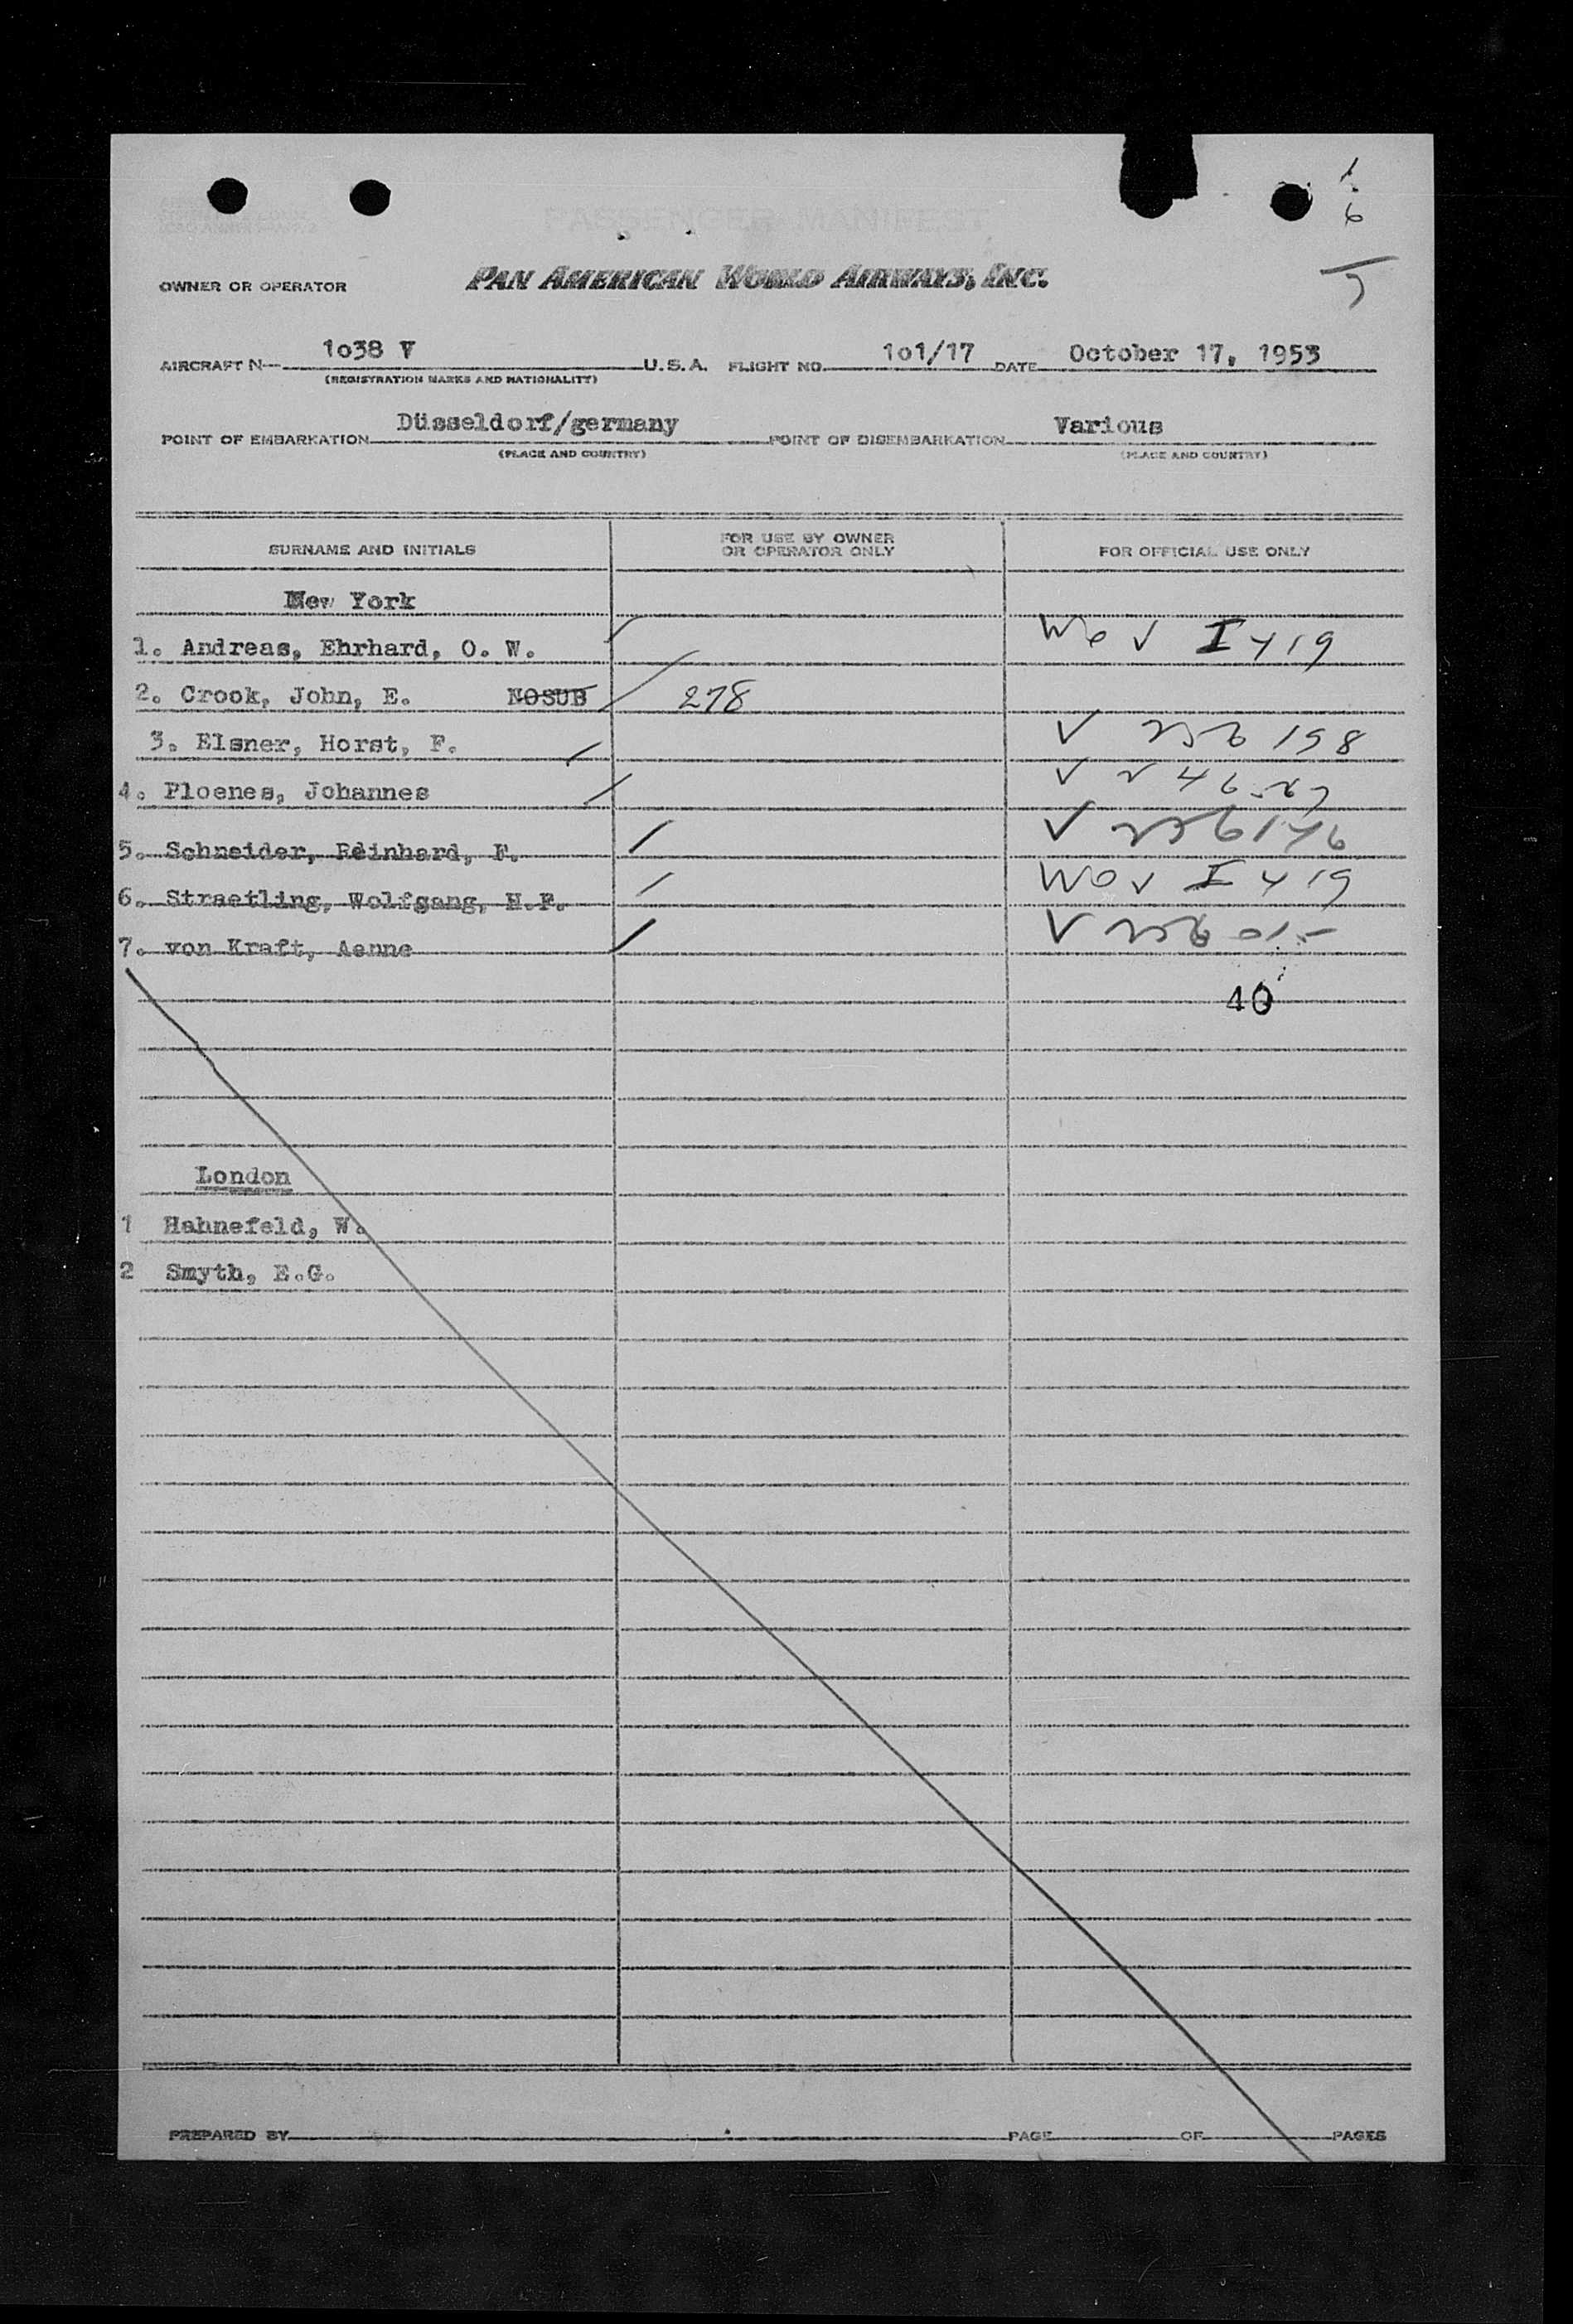 PASSENGER MANIFEST
1
6
5
OWNER OR OPERATOR PAN AMERICAN WORLD AIRWAYS, INC.
AIRCRAFT N 1o38 V U.S.A. FLIGHT NO. 1o1/17 DATE October 17, 1953
(REGISTRATION MARKS AND NATIONALITY)
POINT OF EMBARKATION Düsseldorf/germany POINT OF DISEMBARKATION Various
(PLACE AND COUNTRY) (PLACE AND COUNTRY)
SURNAME AND INITIALS FOR USE BY OWNER OR OPERATOR ONLY FOR OFFICIAL USE ONLY
New York
1. Andreas, Ehrhard, O. W. I 419
2. Crook, John, E. NOSUB 278
3. Elsner, Horst, F. 198
4. Ploenes, Johannes
5. Schneider, Reinhard, F.
6. Straetling, Wolfgang, H.F. I 419
7. von Kraft, Aenne
40
London
1 Hahnefeld, W.
2 Smyth, E.G.
PREPARED BY PAGE OF PAGES